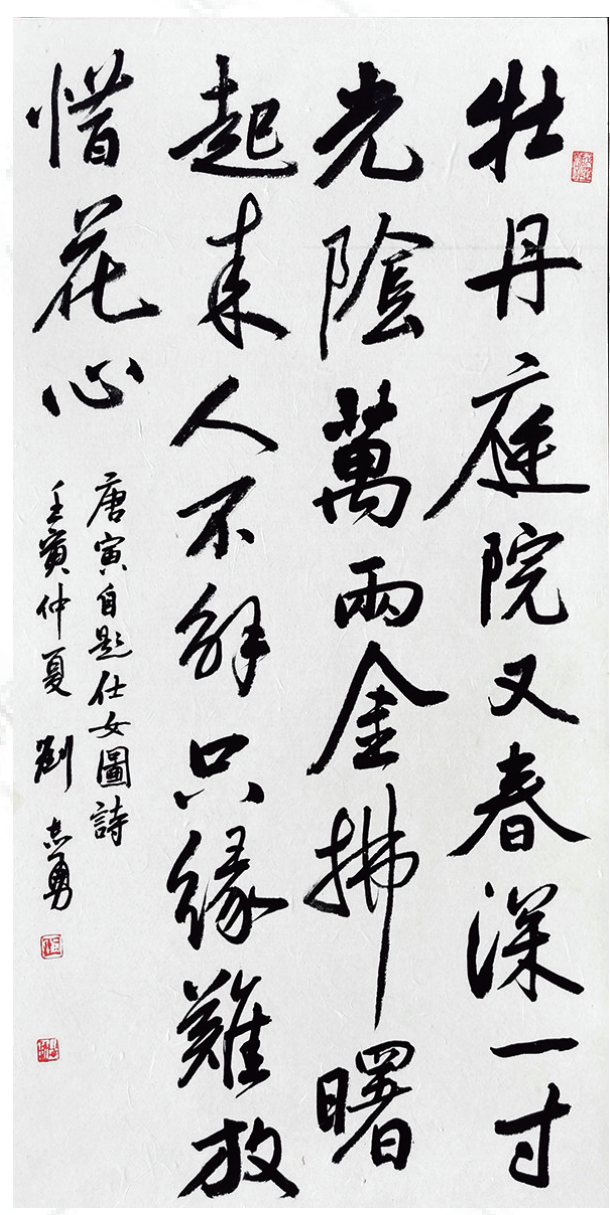 牡丹庭院又春深一寸
光陰萬兩金拂曙
起来人不解只緣難放
惜花心
唐寅自題仕女圖詩
壬寅仲夏 劉志勇